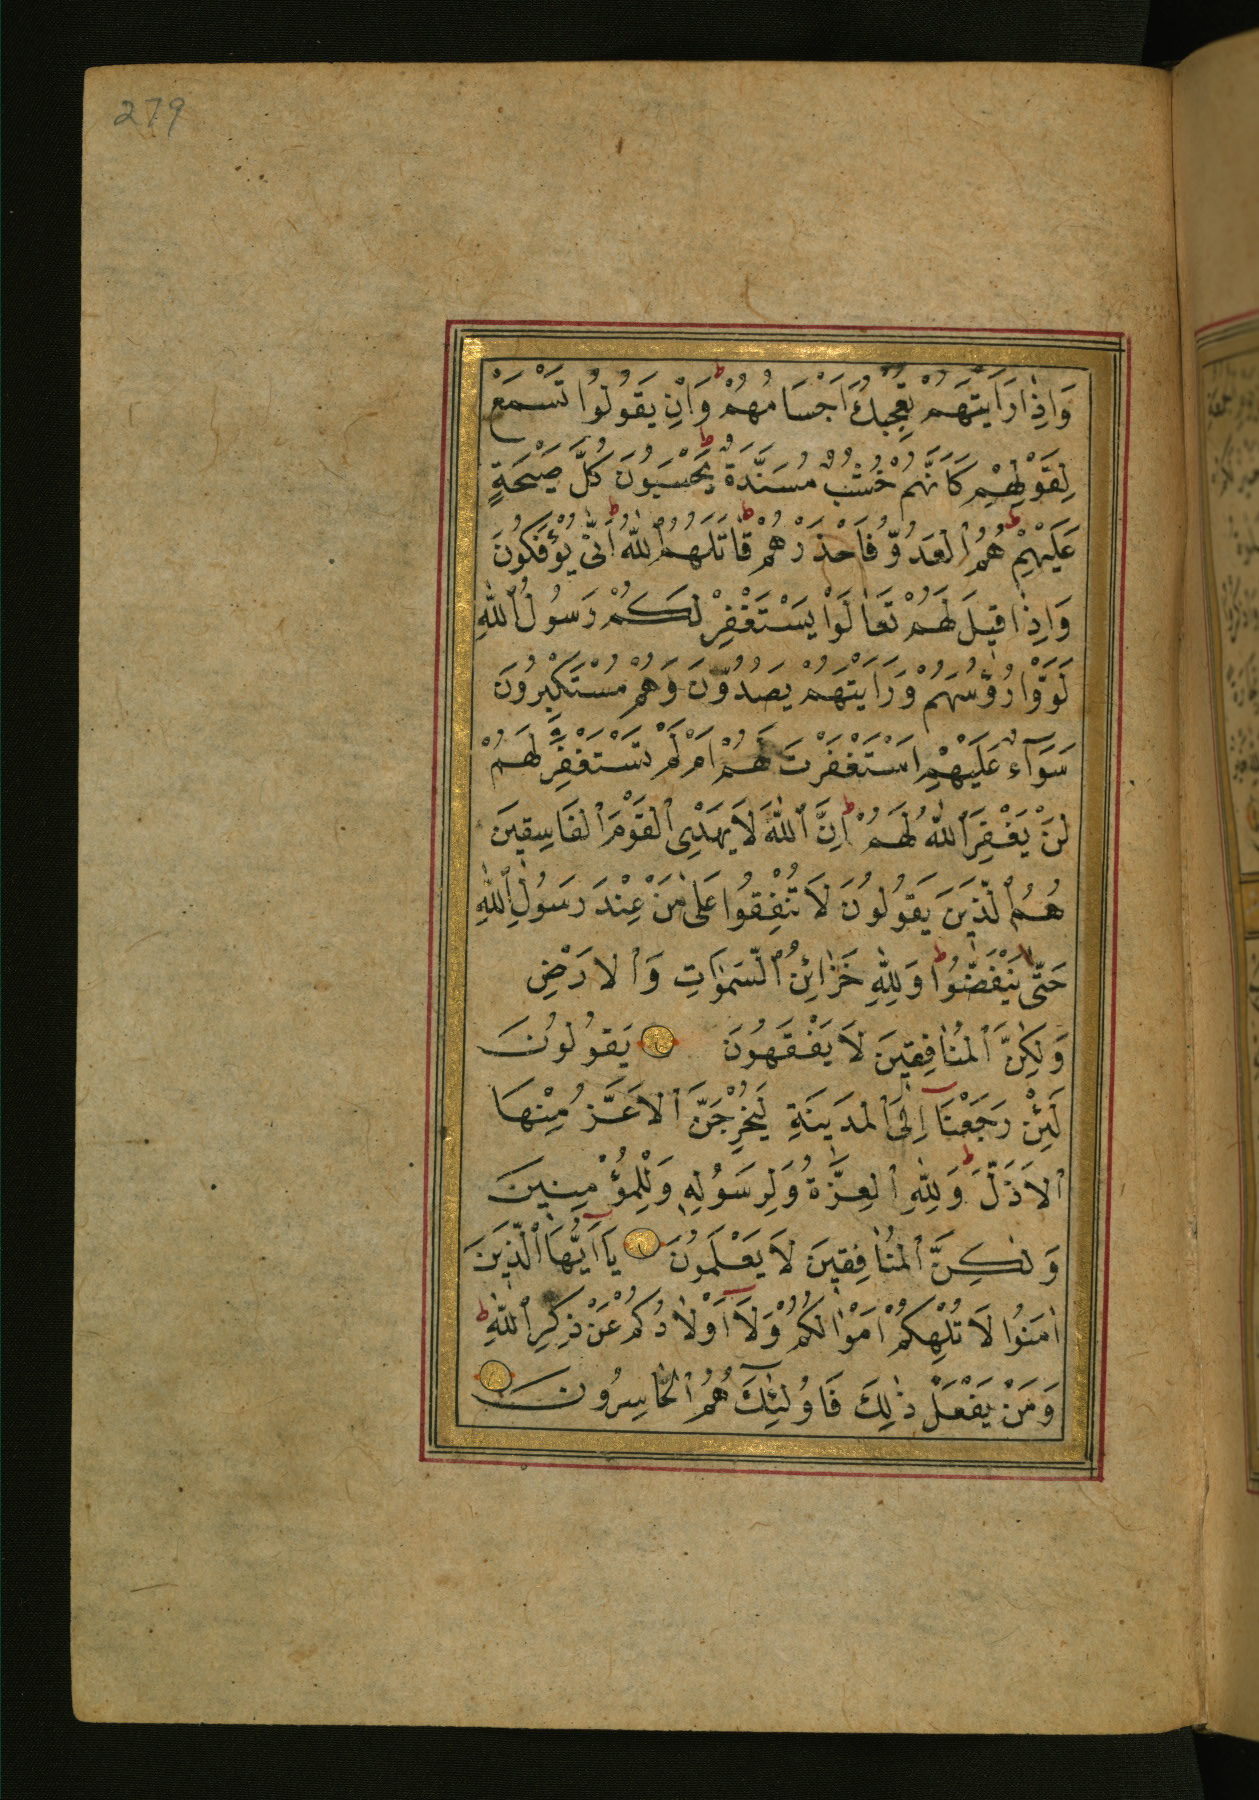 279
وَاِذَا رَاَيْتَهُمْ تُعْجِبُكَ اَجْسَامُهُمْ ط وَاِنْ يَقُولُوا تَسْمَعْ
لِقَوْلِهِمْ كَاَنَّهُمْ خُشُبٌ مُسَنَّدَةٌ ط يَحْسَبُونَ كُلَّ صَيْحَةٍ
عَلَيْهِمْ ط هُمُ الْعَدُوُّ فَاحْذَرْهُمْ ط قَاتَلَهُمُ اللّٰهُ ط اَنّٰى يُؤْفَكُونَ
وَاِذَا قِيلَ لَهُمْ تَعَالَوْا يَسْتَغْفِرْ لَكُمْ رَسُولُ اللّٰهِ
لَوَّوْا رُؤُسَهُمْ وَرَاَيْتَهُمْ يَصُدُّونَ وَهُمْ مُسْتَكْبِرُونَ
سَوَآءٌ عَلَيْهِمْ اَسْتَغْفَرْتَ لَهُمْ اَمْ لَمْ تَسْتَغْفِرْ لَهُمْ
لَنْ يَغْفِرَ اللّٰهُ لَهُمْ ط اِنَّ اللّٰهَ لَا يَهْدِى الْقَوْمَ الْفَاسِقِينَ
هُمُ الَّذِينَ يَقُولُونَ لَا تُنْفِقُوا عَلٰى مَنْ عِنْدَ رَسُولِ اللّٰهِ
حَتّٰى يَنْفَضُّوا ط وَلِلّٰهِ خَزَائِنُ السَّمٰوَاتِ وَالْاَرْضِ
وَلٰكِنَّ الْمُنَافِقِينَ لَا يَفْقَهُونَ يَقُولُونَ
لَئِنْ رَجَعْنَا اِلَى الْمَدِينَةِ لَيُخْرِجَنَّ الْاَعَزُّ مِنْهَا
الْاَذَلَّ ط وَلِلّٰهِ الْعِزَّةُ وَلِرَسُولِهِ وَلِلْمُؤْمِنِينَ
وَلٰكِنَّ الْمُنَافِقِينَ لَا يَعْلَمُونَ يَا اَيُّهَا الَّذِينَ
اٰمَنُوا لَا تُلْهِكُمْ اَمْوَالُكُمْ وَلَا اَوْلَادُكُمْ عَنْ ذِكْرِ اللّٰهِ ط
وَمَنْ يَفْعَلْ ذٰلِكَ فَاُولٰئِكَ هُمُ الْخَاسِرُونَ